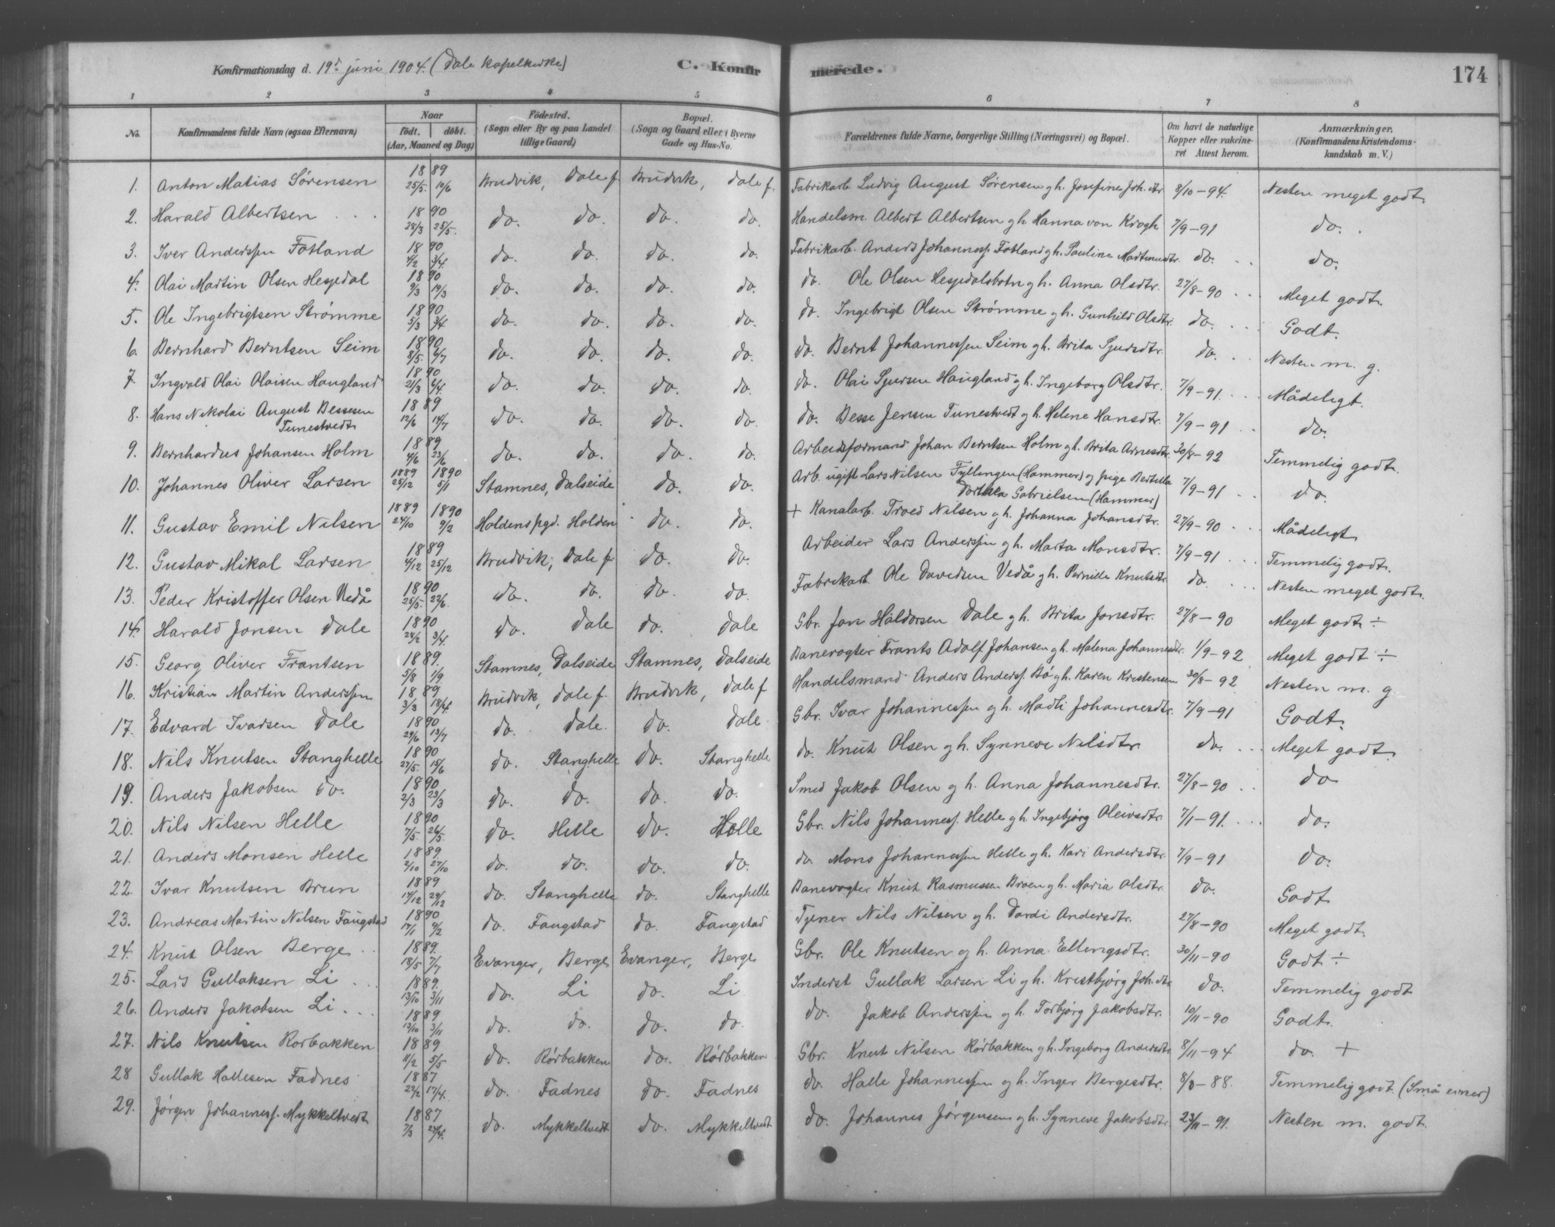 Konfirmationsdag d. 19de juni 1904. (Dale kapelkirke)
C. Konfirmerede.
174
1 2 3 4 5 6 7 8
No. Konfirmandens fulde Navn (ogsaa Efternavn) Naar født. døbt. (Aar, Maaned og Dag) Fødested. (Sogn eller By og paa Landet tillige Gaard) Bopæl. (Sogn og Gaard eller i Byerne Gade og Hus-No. Forældrenes fulde Navne, borgerlige Stilling (Næringsvei) og Bopæl. Om havt de naturlige Kopper eller vakcineret Attest herom. Anmærkninger. (Konfirmandens Kristendomskundskab m. V.)
1. Anton Matias Sørensen 1889 25/5 Brudvik, Dale f Brudvik, Dale f. Fabrikarb. Ludvig August Sørensen g h. Josefine Joh. dtr 8/10-94. Nesten meget godt
2. Harald Albertsen 1890 25/5. do. do. do. do. Handelsm. Albert Albertsen g h. Hanna von Krogh 7/9-91 do.
3. Iver Anderssen Fotland 1890 do. do. do. do. Fabrikarb. Anders Johanness. Fotland g h. Pauline Martinusdtr. do. do.
4. Olai Martin Olsen Hesjedal 1890 do. do. do. do. do. Ole Olsen Hesjedalsbotn g h. Anna Olsdtr. 27/8-90 Meget godt
5. Ole Ingebrigtsen Strømme 1890 do. do. do. do. do. Ingebrigt Olsen Strømme g h. Gunhild Olsdtr. do. Godt.
6. Bernhard Berntsen Seim 1890 do. do. do. do. do. Bernt Johannessen Seim g h. Brita Sjursdtr. do. Nesten m. g.
7. Ingvald Olai Olaisen Haugland 1890 do. do. do. do. do. Olai Sjursen Haugland g h. Ingeborg Olsdtr. 7/9-91 Mådeligt
8. Hans Nikolai August Bessesen Tunestvedt 1889 12/6 14/7 do. do. do. do. do. Besse Jensen Tunestvedt g h. Helene Hansdtr. 7/9-91 do.
9. Bernhardus Johansen Holm 1889 23/6 do. do. do. do. Arbeidsformand Johan Berntsen Holm g h. Brita Arnesdtr 30/8-92 Temmelig godt
10. Johannes Oliver Larsen 1889 25/12 1890 5/1 Stamnes, Dalseide do. do. Arb. ugift Lars Nilsen Fyllingen (Hammer) og pige Gabrielsen (Hammer) 7/9-91 do.
11. Gustav Emil Nilsen 1889 24/10 1890 9/2 Holdens pgd. Holden do. do. + Kanalarb. Troed Nilsen g h. Johanna Johansdtr. 27/9-90 Mådeligt
12. Gustav Mikal Larsen 1889 4/12 25/12 Brudvik, Dale f do. do. Arbeider Lars Anderssen g h. Marta Monsdtr. 7/9-91 Temmelig godt.
13. Peder Kristoffer Olsen Vedå 1890 25/5. 22/6. do. do. do. do. Fabrikarb. Ole Davidsen Vedå g h. Pernille Knutsdtr do. Nesten meget godt.
14. Harald Jonsen Dale 1890 do. Dale do. Dale Gbr. Jon Haldorsen Dale g h. Brita Jonsdtr. 27/8-90 Meget godt ÷
15. Georg Oliver Frantsen 1889. 3/8 1/9 Stamnes, Dalseide Stamnes, Dalseide Banevogter Frants Adolf Johansen g h. Malena Johannesdtr 1/9-92 Meget godt ÷
16. Kristian Martin Anderssen 1889 Brudvik, Dale f. Brudvik, Dale f Handelsmand Anders Anderss. Bø g h. Karen Kristensen 30/8-92. Nesten m. g
17. Edvard Ivarsen Dale 1890 29/6 13/7 do. Dale. do. Dale. Gbr. Ivar Johannessen g h. Madli Johannesdtr. 7/9-91 Godt.
18. Nils Knutsen Stanghelle 1890 do. Stanghelle do. Stanghelle do. Knut Olsen g h. Synneve Nilsdtr do. Meget godt
19. Anders Jakobsen do. 1890 2/3 23/3 do. do. do. do. Smed Jakob Olsen g h. Anna Johannesdtr. 27/8-90 do
20. Nils Nilsen Helle 1890 7/5 26/5 do. Helle do. Helle Gbr. Nils Johanness. Helle g h. Ingebjørg Oleivsdtr 7/11-91 do.
21. Anders Monsen Helle 1889 2/10 27/10 do. do. do. do. do Mons Johannessen Helle g h. Kari Andersdtr. 7/9-91 do.
22. Ivar Knutsen Brun 1889 do. Stanghelle do. Stanghelle Banevogter Knut Rasmussen Broen g h. Maria Olsdtr. do. Godt
23. Andreas Martin Nilsen Fangstad 1890 9/2 do. Fangstad do. Fangstad Tjener Nils Nilsen g h. Dordi Andersdtr. 27/8-90 Meget godt.
24. Knut Olsen Berge 1889. 7/7 Evanger, Berge Evanger, Berge Gbr. Ole Knutsen g h. Anna Ellingsdtr. 30/11-90 Godt ÷
25. Lars Gullaksen Li 1889. 13/10 3/11 do. Li do. Li Inderst Gullak Larsen Li g h. Kristbjørg Joh. dtr do. Temmelig godt
26. Anders Jakobsen Li 1889 13/10 3/11 do. do. do. do. do. Jakob Anderssen g h. Torbjørg Jakobsdtr. 10/11-90 Godt.
27. Nils Knutsen Rørbakken 1889 11/2 5/5 do. Rørbakken do. Rørbakken Gbr. Knut Nilsen Rørbakken g h. Ingeborg Andersdtr 8/11-94 do. +
28 Gullak Hallesen Fadnes 1887 17/4. do. Fadnes do. Fadnes do. Halle Johannessen g h. Inger Bergesdtr. 8/8-88. Temmelig godt (Små evner)
29. Jørgen Johanness. Mykkeltvedt 1887 7/3 24/4. do. Mykkeltvedt do. Mykkeltvedt do. Johannes Jørgensen g h. Synneve Jakobsdtr. 23/11-91. Nesten m. godt